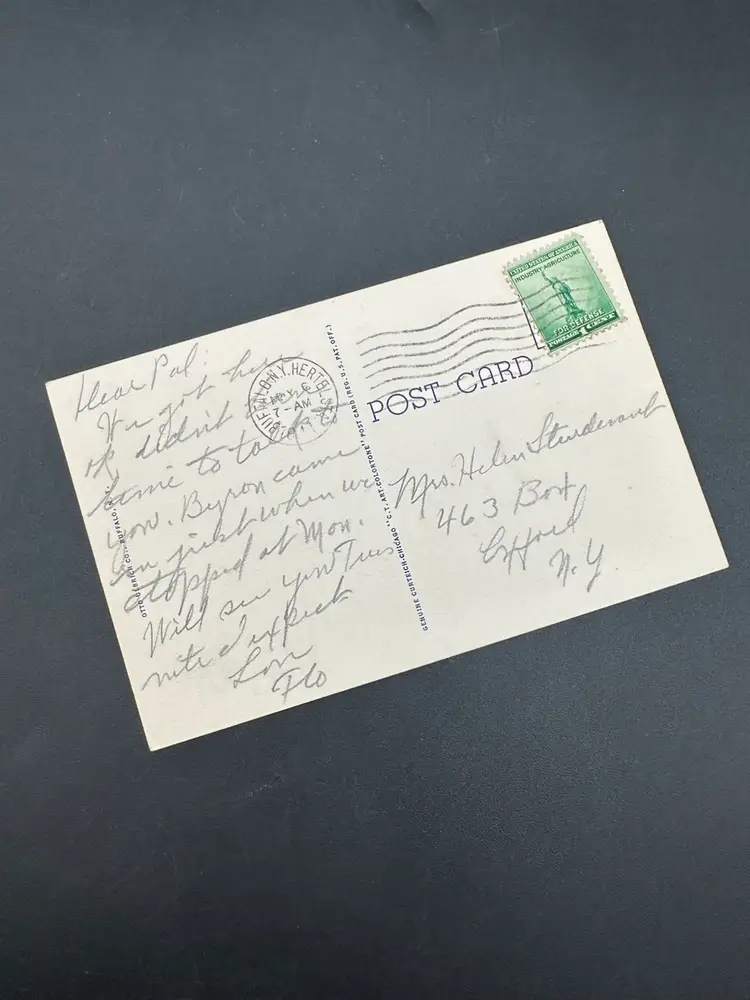 Dear Pal:
We got here
ok didn't have
time to talk to
you. Byron came
in just when we
stopped at Mon.
Will see you Tues
nite I expect
Love
Flo
BUFFALO, N.Y. HERTEL STA.
MAY 6
7-AM
UNITED STATES OF AMERICA
INDUSTRY AGRICULTURE
FOR DEFENSE
POSTAGE 1 CENT
POST CARD
Mrs. Helen Sturdevant
463 Box
N.Y.
GENUINE CURTEICH-CHICAGO "C.T. ART-COLORTONE" POST CARD (REG. U.S. PAT. OFF.)
CO., BUFFALO,